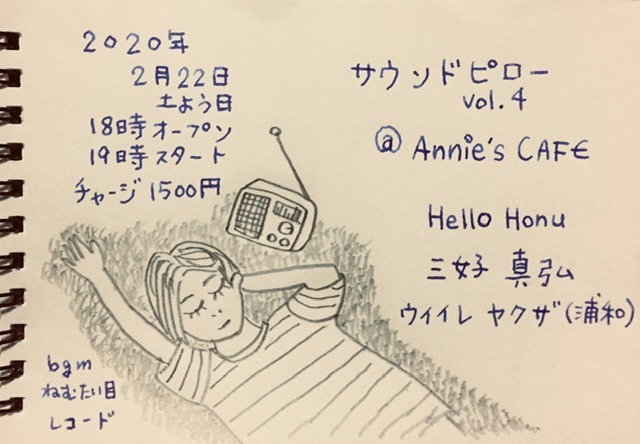 2020年
2月22日
土よう日
18時オープン
19時スタート
チャージ1500円
サウンドピロー
vol.4
@ Annie's CAFE
Hello Honu
三好 真弘
ウイイレ ヤクザ(浦和)
bgm
ねむたい目
レコード